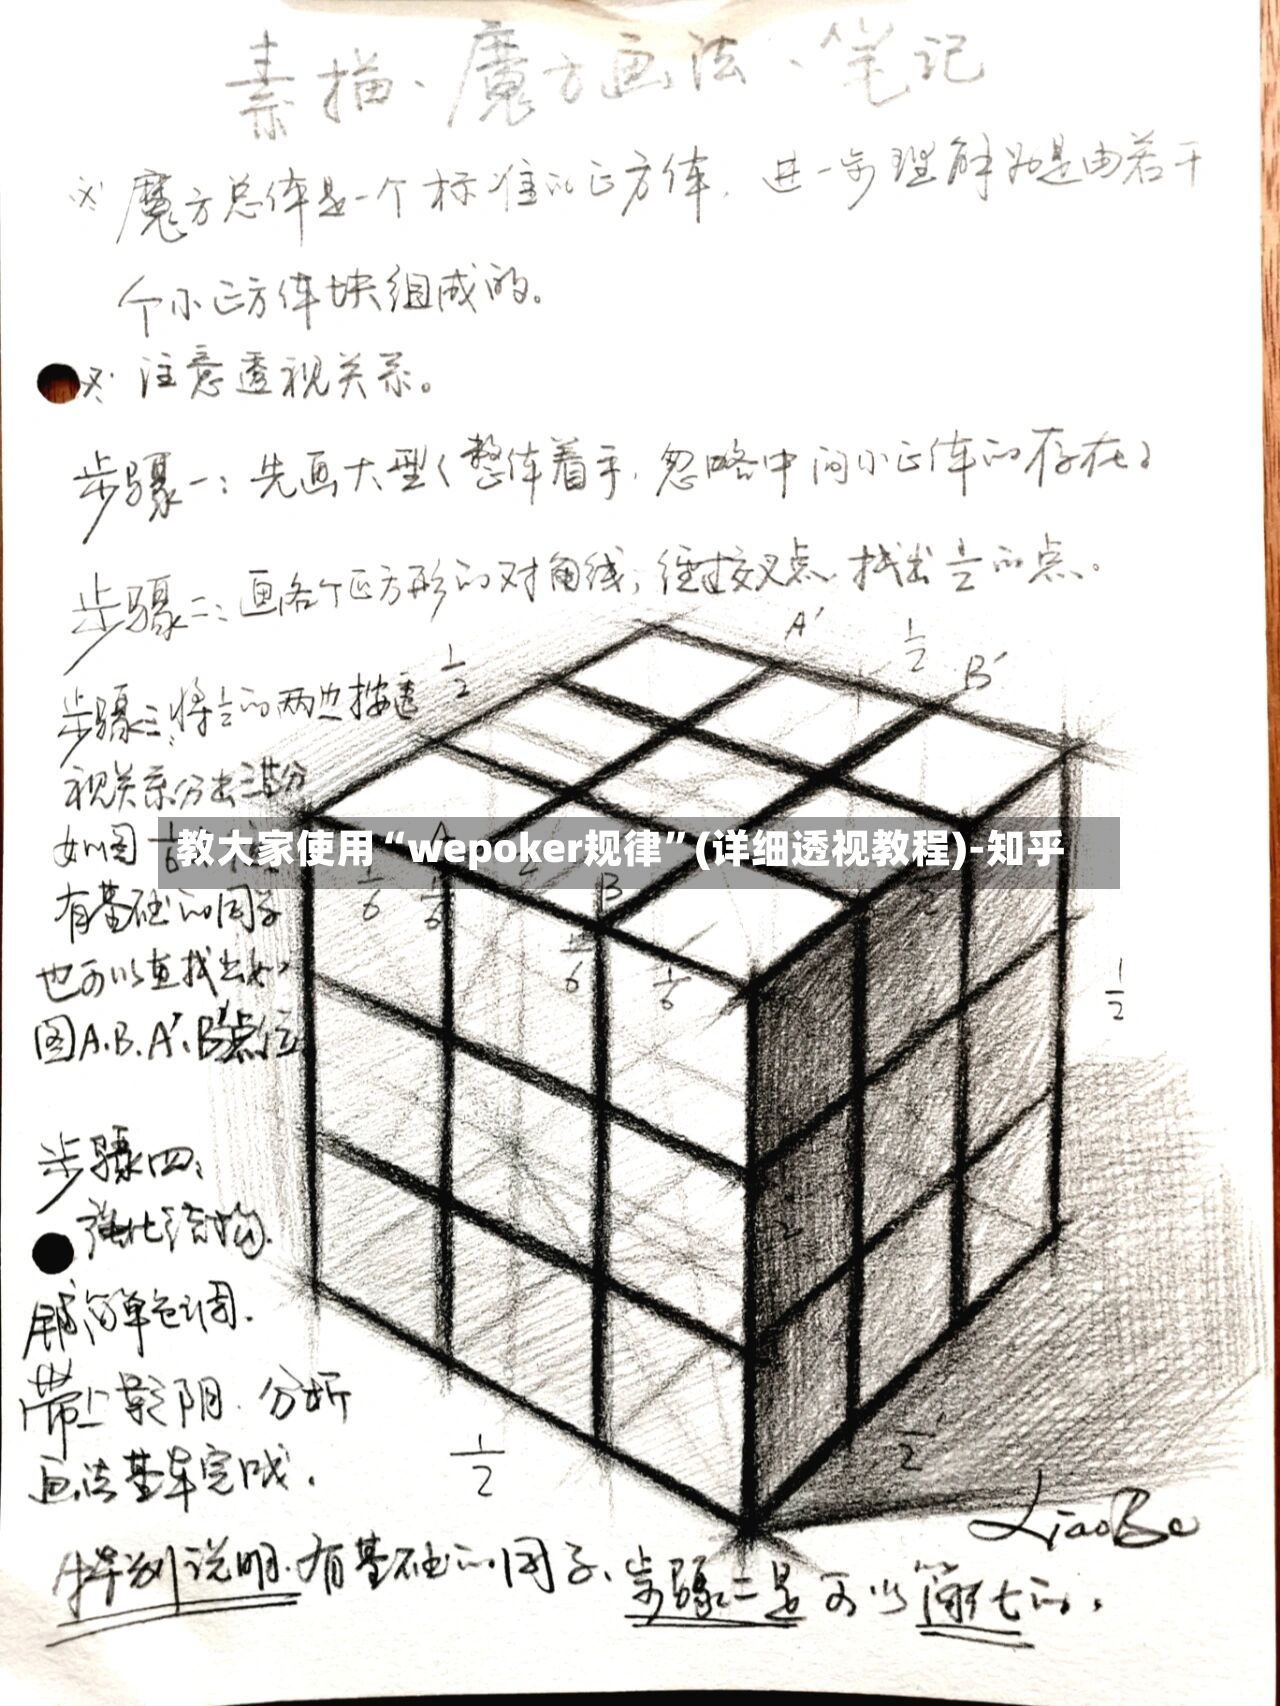 素描、魔方画法、笔记
※ 魔方总体是一个标准的正方体，进一步理解为是由若干
个小正方体块组成的。
※ 注意透视关系。
步骤一：先画大型（整体着手，忽略中间小正体的存在）
步骤二：画各个正方形的对角线，经过交叉点，找出1/2的点。
步骤三：将1/2的两边按透
视关系分出三等分
如图1/6
有基础的同学
也可以直接找出如
图A.B.A'.B'点位
步骤四：
强化结构，
铺简单色调.
带上影阴.分析
画法基本完成.
特别说明.有基础的同学、步骤二是可以简化的.
教大家使用“wepoker规律”(详细透视教程)-知乎
A'
1/2
B'
1/2
A
B
1/6
1/6
1/6
1/6
1/2
1/2
1/2
LiaoBo